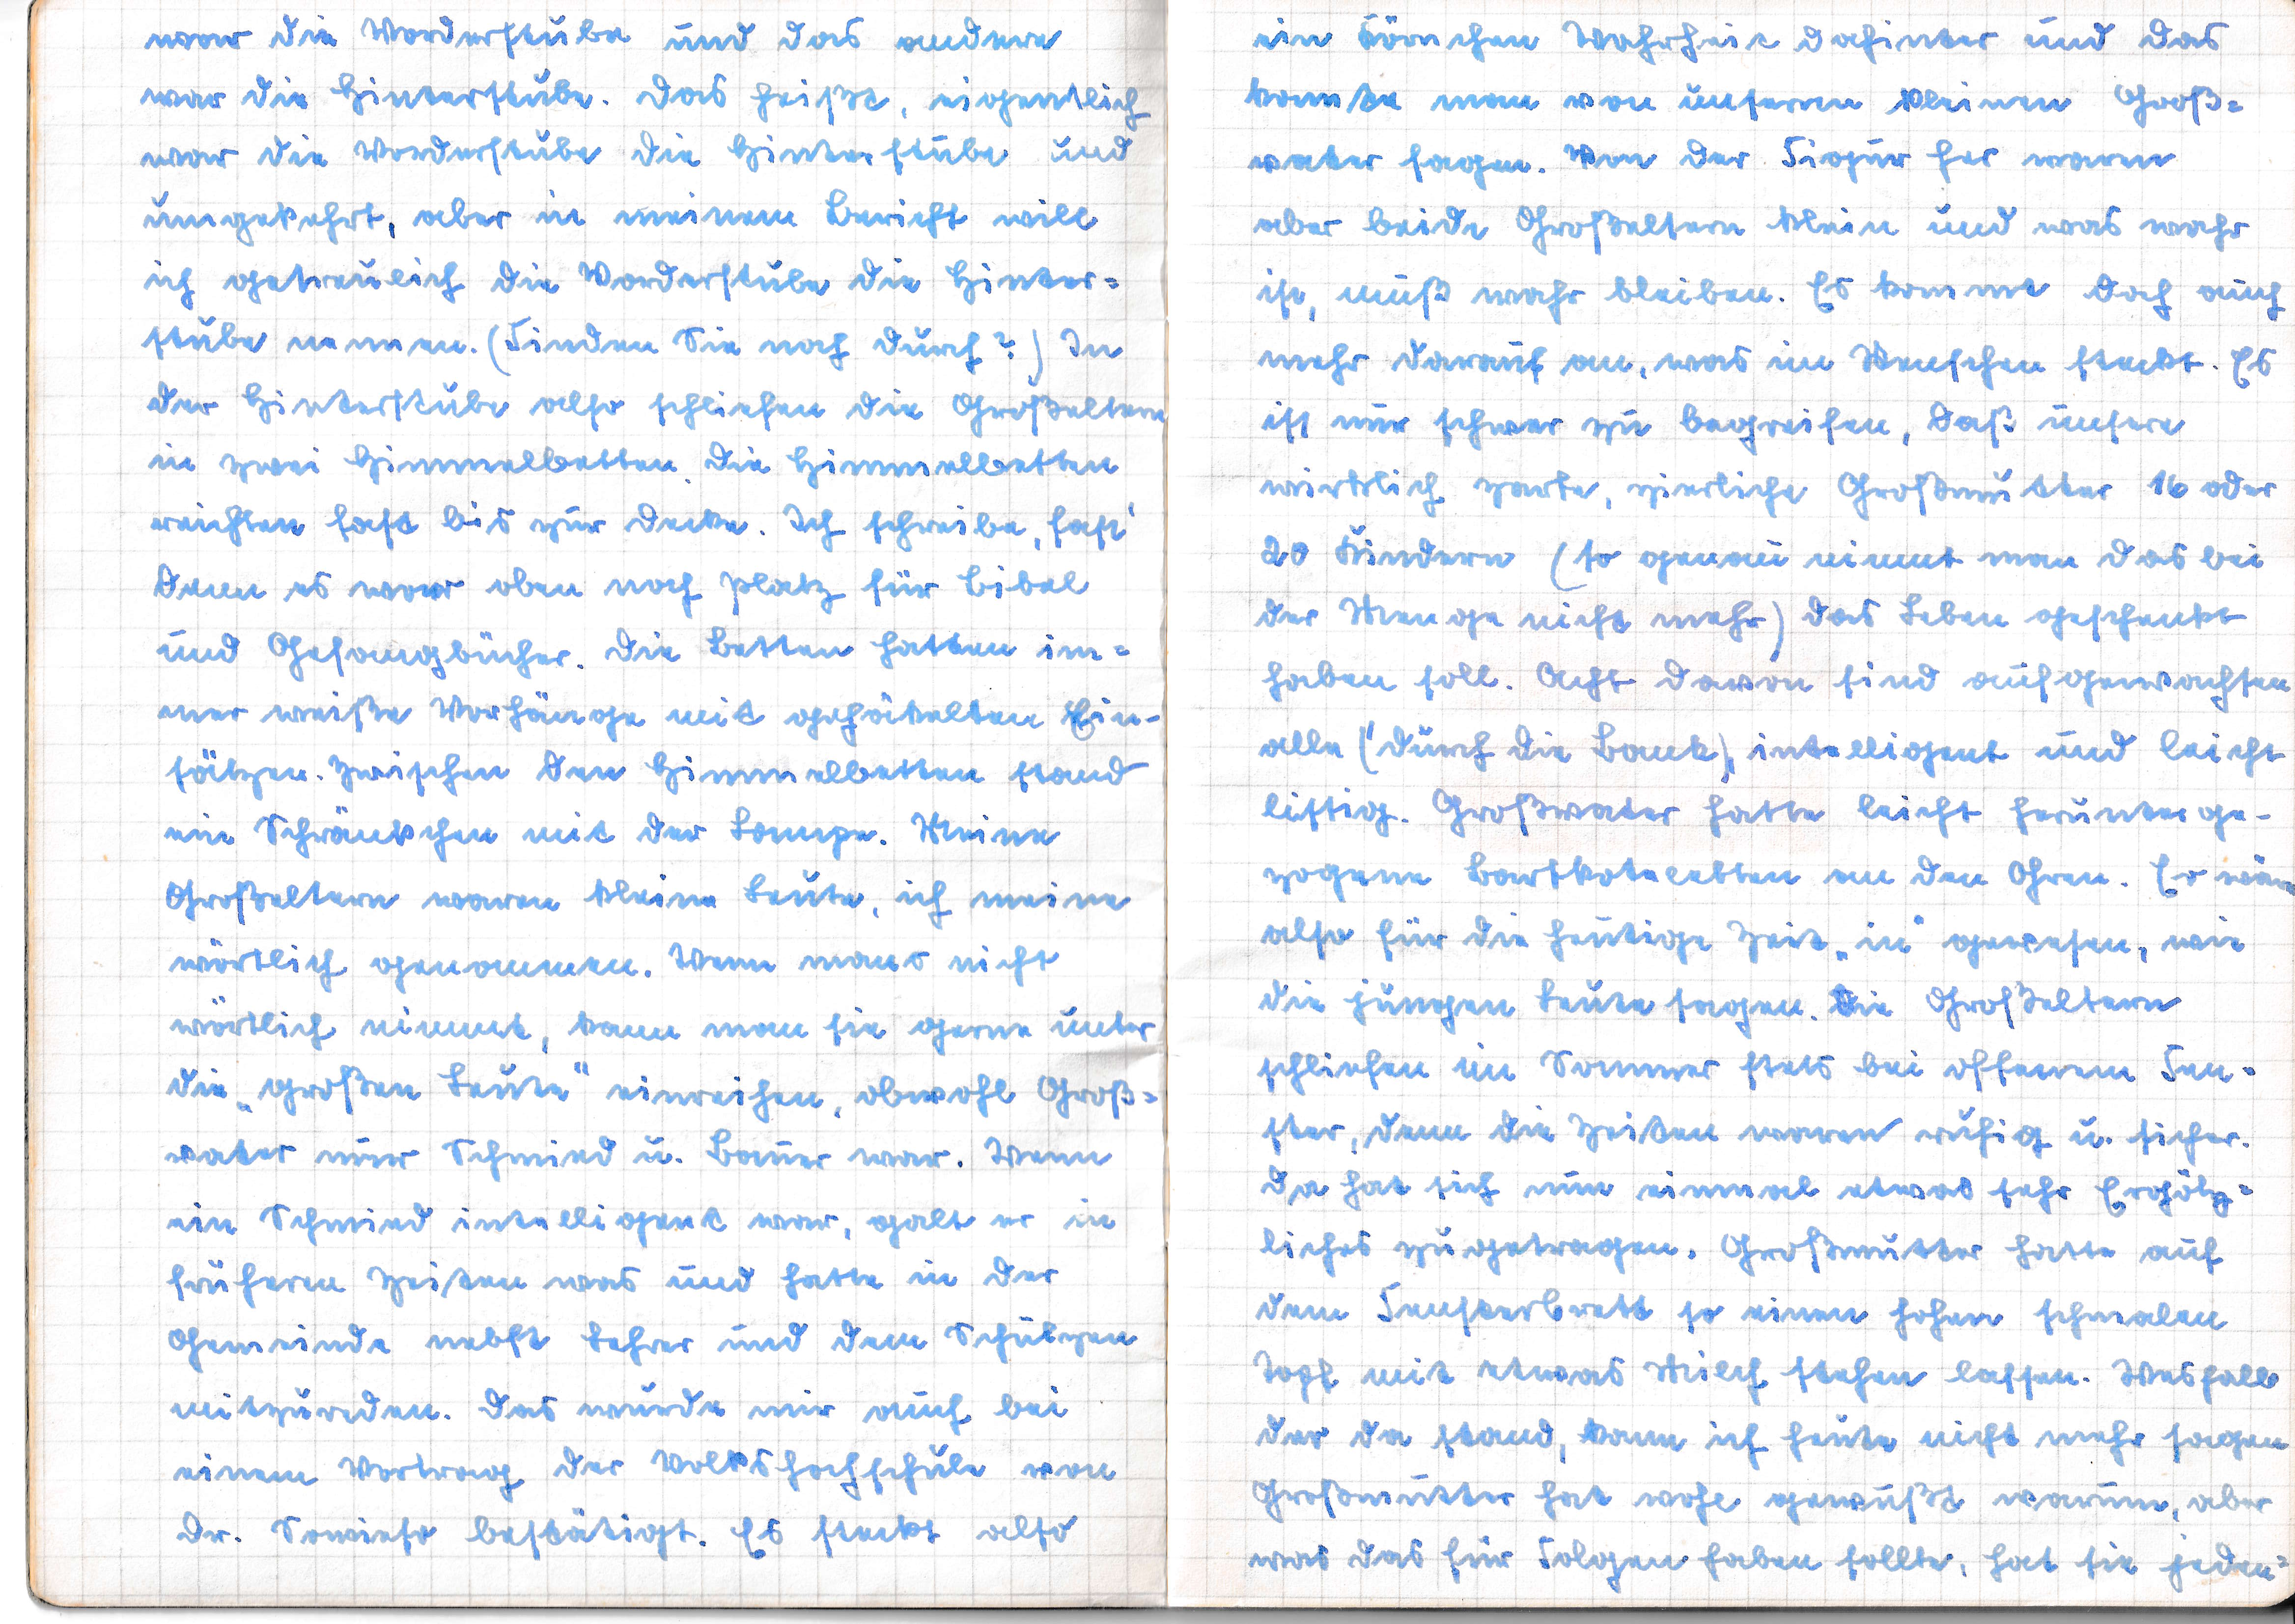 war die Vorderstube und das andere
war die Hinterstube. Das heißt, eigentlich
war die Vorderstube die Hinterstube und
umgekehrt, aber in meinem Bericht will
ich getreulich die Vorderstube die Hinter=
stube nennen. (Finden Sie noch durch?) In
der Hinterstube also schliefen die Großeltern
in zwei Himmelbetten. Die Himmelbetten
reichten fast bis zur Decke. Ich schreibe, fast'
denn es war oben noch Platz für Bibel
und Gesangbücher. Die Betten hatten im=
mer weiße Vorhänge mit gehäkelten Ein-
sätzen. Zwischen den Himmelbetten stand
ein Schränkchen mit der Lampe. Meine
Großeltern waren kleine Leute, ich meine
wörtlich genommen. Wenn mans nicht
wörtlich nimmt, kann man sie gerne unter
die „großen Leute" einreihen, obwohl Groß=
vater nur Schmied u. Bauer war. Wenn
ein Schmied intelligent war, galt er in
früheren Zeiten was und hatte in der
Gemeinde nebst Lehrer und dem Schulzen
mitzureden. Das wurde mir auch bei
einem Vortrag der Volkshochschule von
Dr. Sowieso bestätigt. Es steckt also
ein Körnchen Wahrheit dahinter und das
konnte man von unserem kleinen Groß=
vater sagen. Von der Figur her waren
aber beide Großeltern klein und was wahr
ist, muß wahr bleiben. Es kommt doch auch
mehr darauf an, was im Menschen steckt. Es
ist nur schwer zu begreifen, daß unsere
wirklich zarte, zierliche Großmutter 16 oder
20 Kindern (so genau nimmt man das bei
der Menge nicht mehr) das Leben geschenkt
haben soll. Acht davon sind aufgewachsen
alle ("durch die Bank), intelligent und leicht
listig. Großvater hatte leicht herunterge-
zogene Bartkoteletten an den Ohren. Er wäre
also für die heutige Zeit „in" gewesen, wie
die jungen Leute sagen. Die Großeltern
schliefen im Sommer stets bei offenem Fen=
ster, denn die Zeiten waren ruhig u. sicher.
Da hat sich nun einmal etwas sehr Ergötz=
liches zugetragen. Großmutter hatte auf
dem Fensterbrett so einen hohen schmalen
Topf mit etwas Milch stehen lassen. Weshalb
der da stand, kann ich heute nicht mehr sagen
Großmutter hat wohl gewußt warum, aber
was das für Folgen haben sollte, hat sie jeden=